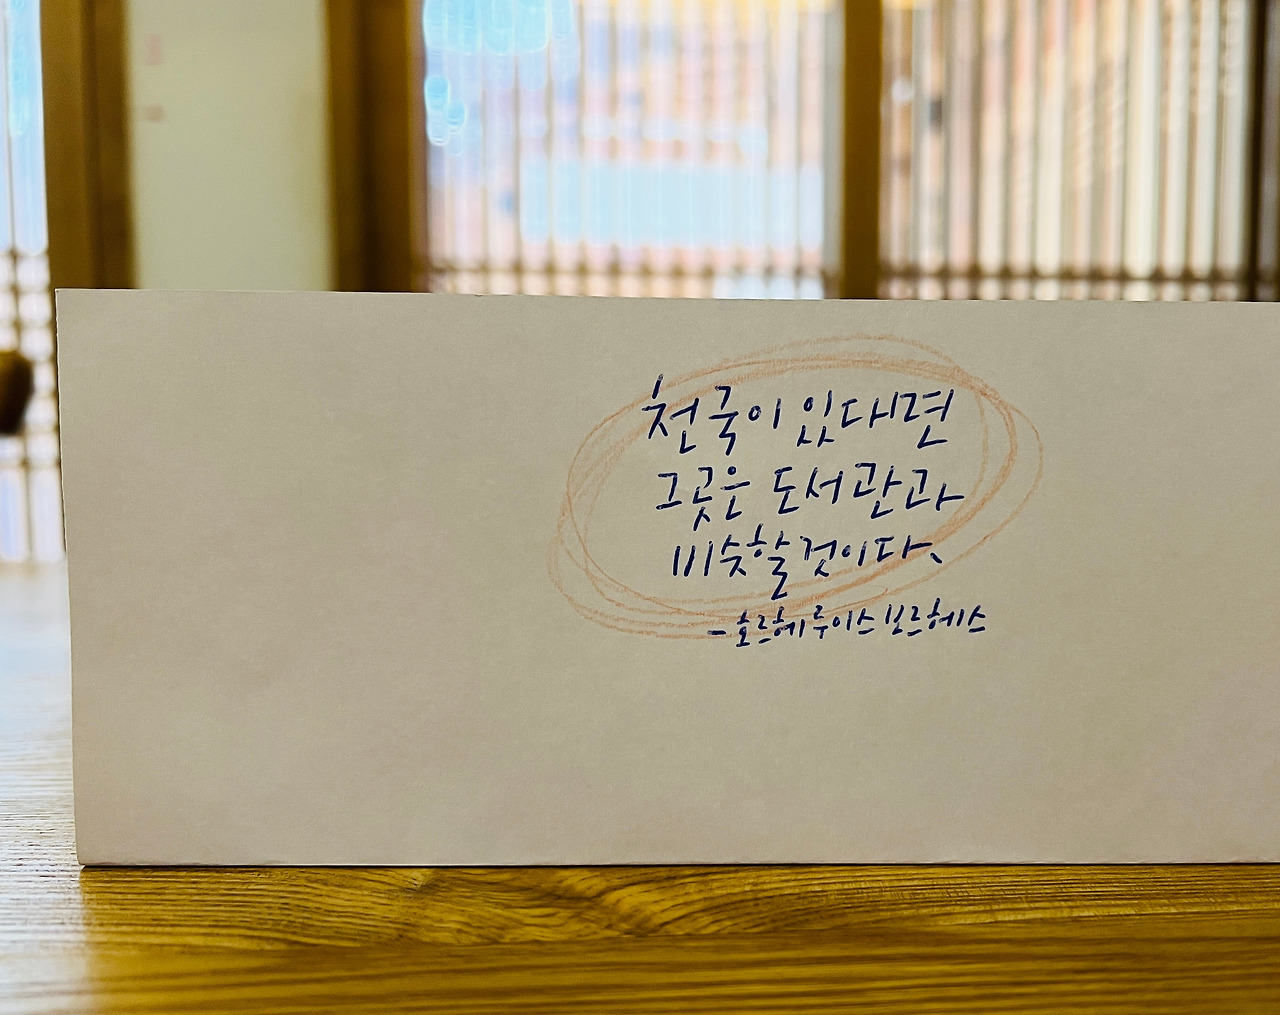 천국이 있다면
그곳은 도서관과
비슷할 것이다.
- 호르헤 루이스 보르헤스